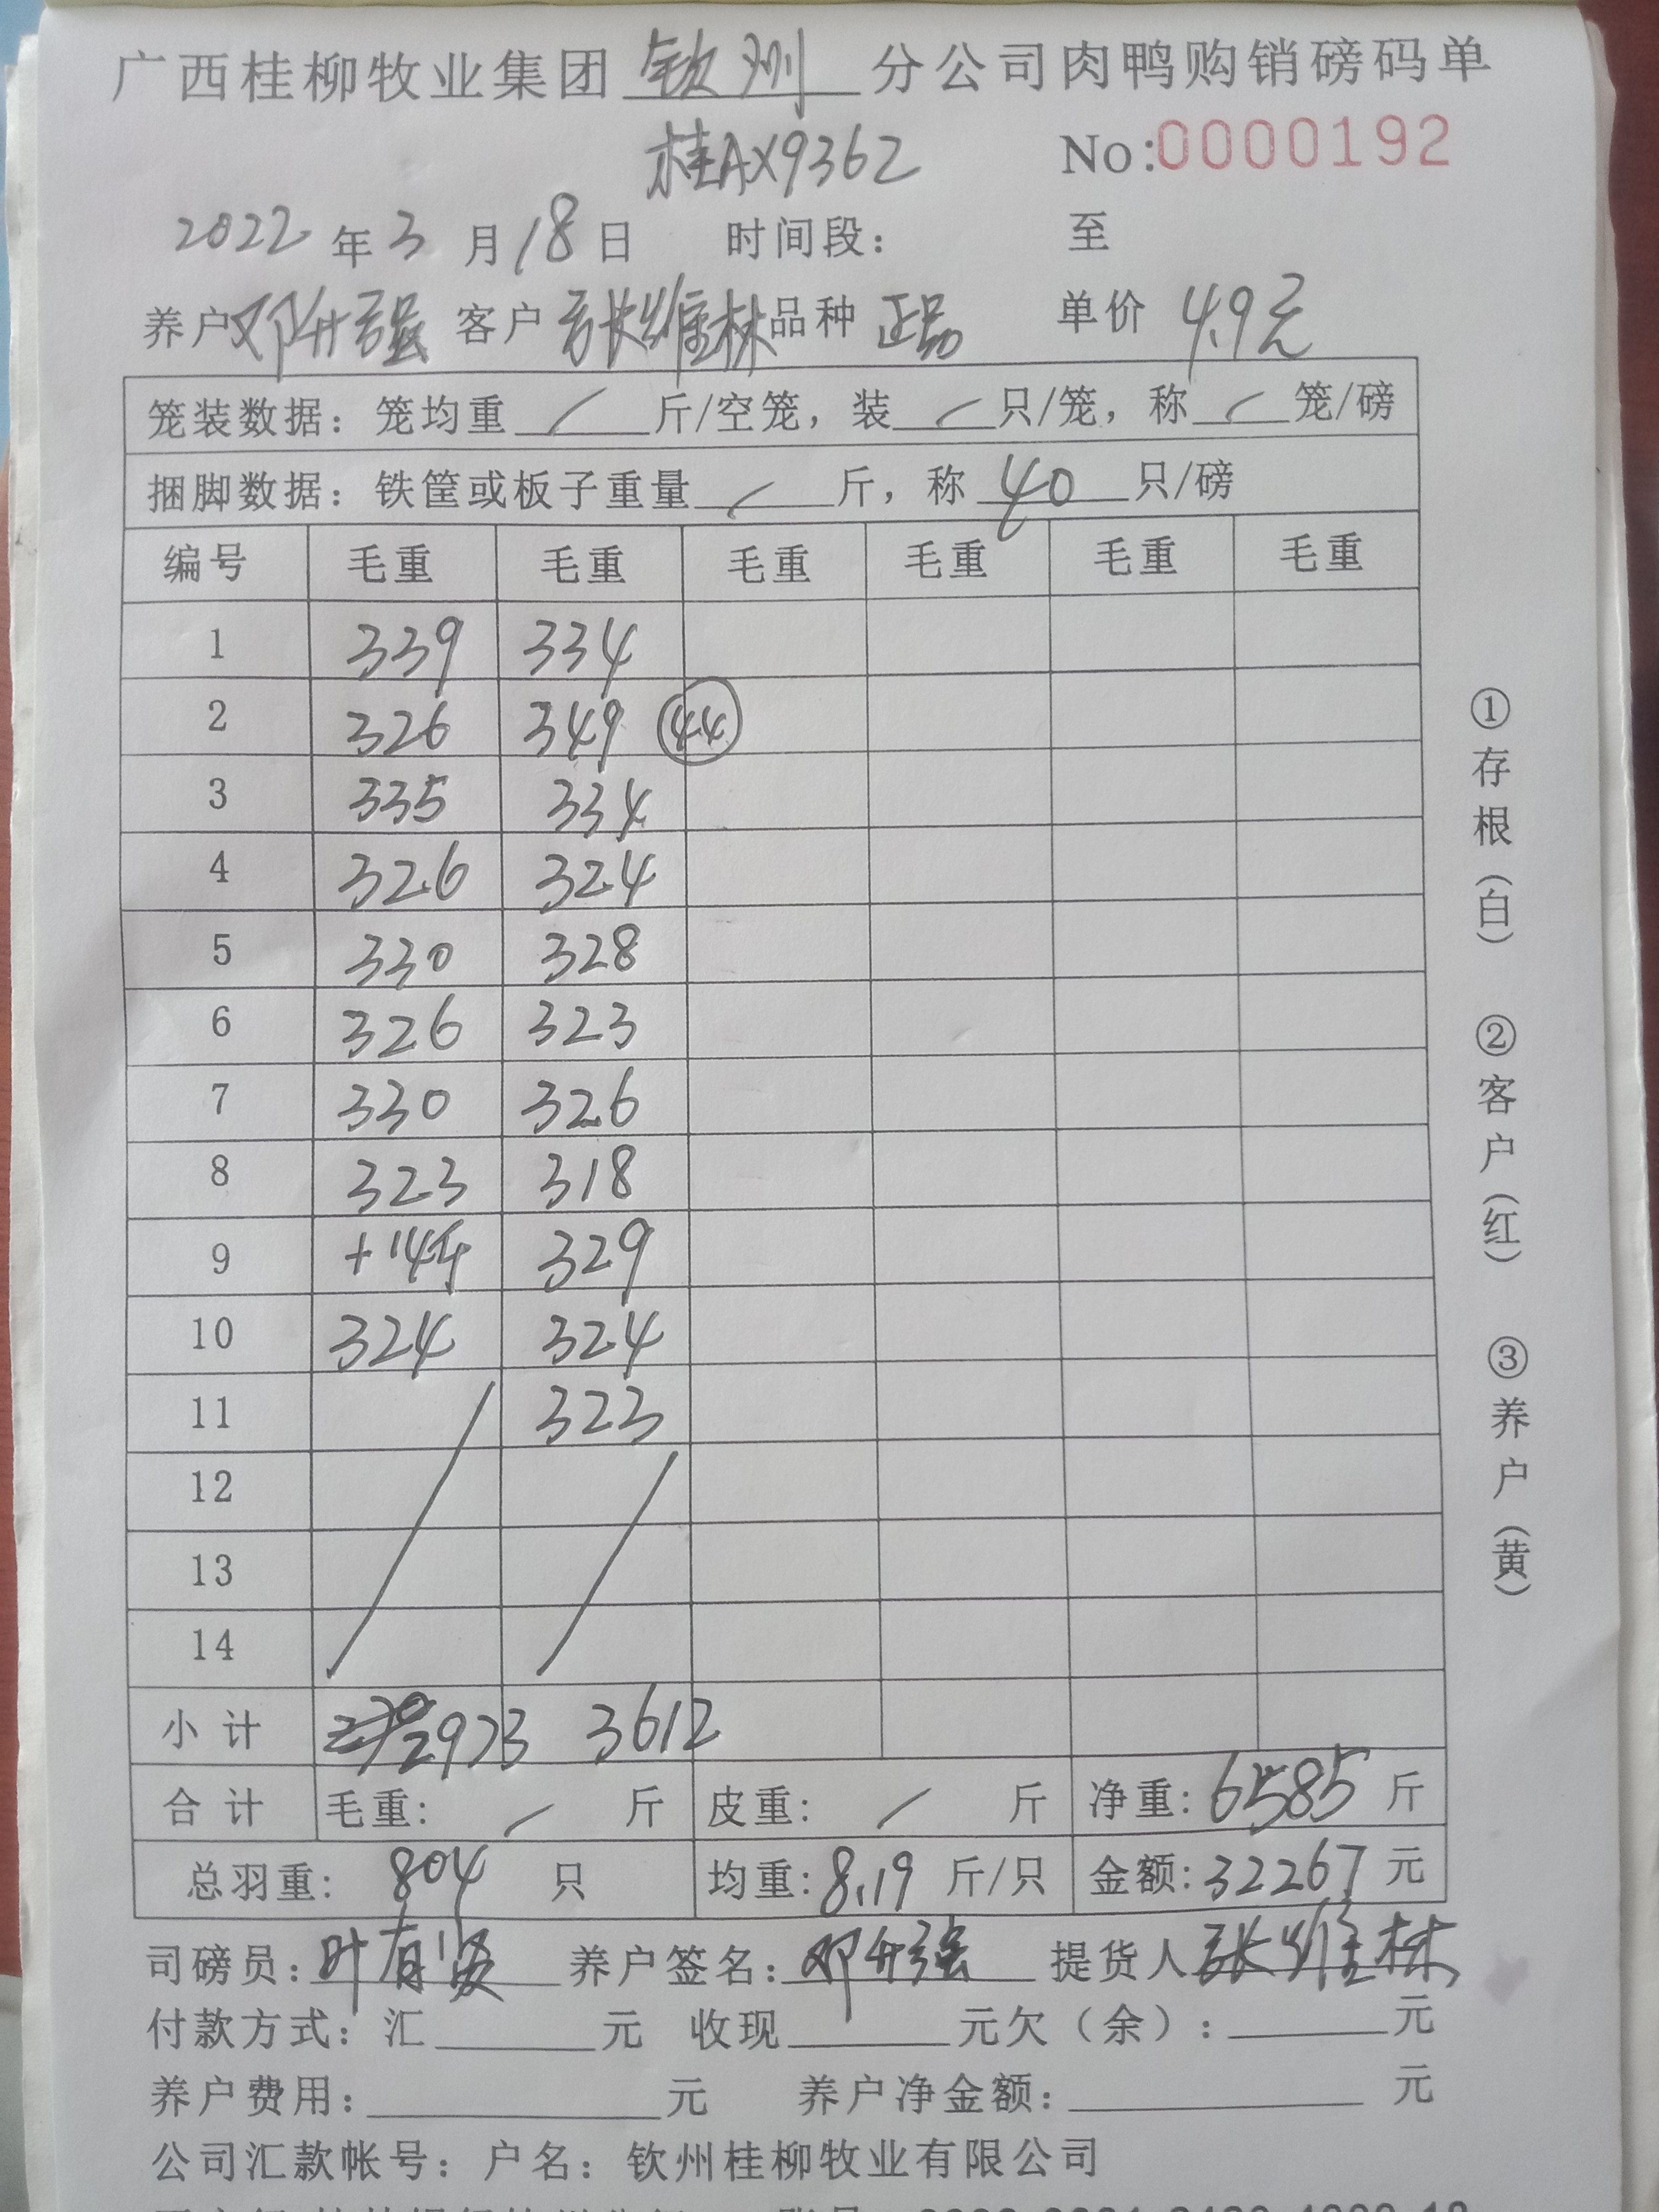 广西桂柳牧业集团钦州分公司肉鸭购销磅码单
桂AX9362 No:0000192
2022年3月18日 时间段: 至
养户邓升强 客户张维林 品种 正品 单价 4.9元
笼装数据: 笼均重/斤/空笼, 装/只/笼, 称/笼/磅
捆脚数据: 铁筐或板子重量/斤, 称40只/磅
编号 毛重 毛重 毛重 毛重 毛重 毛重
1 339 334
2 326 349 44
3 335 334
4 326 324
5 330 328
6 326 323
7 330 326
8 323 318
9 +14斤 329
10 324 324
11 323
12
13
14
小计 2973 3612
合计 毛重: / 斤 皮重: / 斤 净重: 6585 斤
总羽重: 804 只 均重: 8.19 斤/只 金额: 32267 元
司磅员: 叶有 养户签名: 邓升强 提货人张维林
付款方式: 汇 元 收现 元欠(余): 元
养户费用: 元 养户净金额: 元
公司汇款帐号: 户名: 钦州桂柳牧业有限公司
①存根(白) ②客户(红) ③养户(黄)